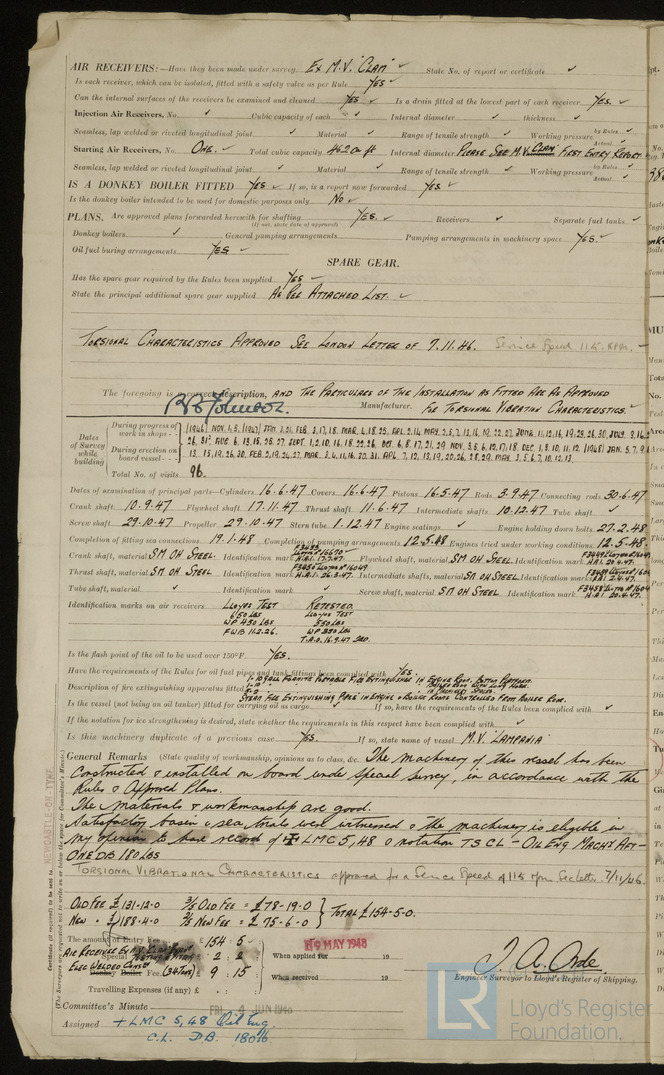 AIR RECEIVERS:—Have they been made under survey Ex M.V. "CLAM" ✓ State No. of report or certificate ✓
Is each receiver, which can be isolated, fitted with a safety valve as per Rule YES ✓
Can the internal surfaces of the receivers be examined and cleaned YES ✓ Is a drain fitted at the lowest part of each receiver YES. ✓
Injection Air Receivers, No. ✓ Cubic capacity of each ✓ Internal diameter ✓ thickness ✓
Seamless, lap welded or riveted longitudinal joint ✓ Material ✓ Range of tensile strength ✓ Working pressure by Rules Actual
Starting Air Receivers, No. ONE. ✓ Total cubic capacity 462 cu ft Internal diameter PLEASE SEE M.V. "CLAM" FIRST ENTRY REPORT.
Seamless, lap welded or riveted longitudinal joint ✓ Material ✓ Range of tensile strength ✓ Working pressure by Rules Actual
IS A DONKEY BOILER FITTED YES ✓ If so, is a report now forwarded YES. ✓
Is the donkey boiler intended to be used for domestic purposes only NO ✓
PLANS. Are approved plans forwarded herewith for shafting YES. ✓ Receivers ✓ Separate fuel tanks ✓
(If not, state date of approval)
Donkey boilers ✓ General pumping arrangements Pumping arrangements in machinery space YES. ✓
Oil fuel burning arrangements YES ✓
SPARE GEAR.
Has the spare gear required by the Rules been supplied YES —
State the principal additional spare gear supplied AS PER ATTACHED LIST. ✓
TORSIONAL CHARACTERISTICS APPROVED SEE LONDON LETTER OF 7.11.46. Service Speed 115 RPM.
The foregoing is a correct description, AND THE PARTICULARS OF THE INSTALLATION AS FITTED ARE AS APPROVED
Manufacturer. FOR TORSIONAL VIBRATION CHARACTERISTICS. ✓
Dates of Survey while building
During progress of work in shops - -
During erection on board vessel - - -
Total No. of visits 96.
Dates of examination of principal parts—Cylinders 16.6.47 Covers 16.6.47 Pistons 16.5.47 Rods 3.9.47 Connecting rods 30.6.47
Crank shaft 10.9.47 Flywheel shaft 17.11.47 Thrust shaft 11.6.47 Intermediate shafts 10.12.47 Tube shaft ✓
Screw shaft 29.10.47 Propeller 29.10.47 Stern tube 1.12.47 Engine seatings ✓ Engine holding down bolts 27.2.48
Completion of fitting sea connections 19.1.48 Completion of pumping arrangements 12.5.48 Engines tried under working conditions 12.5.48.
Crank shaft, material SM OH STEEL. Identification mark Flywheel shaft, material SM OH STEEL. Identification mark
Thrust shaft, material SM OH STEEL Identification mark Intermediate shafts, material SM OH STEEL Identification marks
Tube shaft, material ✓ Identification mark ✓ Screw shaft, material SM OH STEEL Identification mark
Identification marks on air receivers LLOYDS TEST RETESTED.
650 LBS LLOYDS TEST
WP 430 LBS 550 LBS
FWB 11.2.26. WP 350 LBS
Is the flash point of the oil to be used over 150°F. YES.
Have the requirements of the Rules for oil fuel pipes and tank fittings been complied with YES
Description of fire extinguishing apparatus fitted
STEAM FIRE EXTINGUISHING PIPES IN ENGINE & BOILER ROOMS CONTROLLED FROM BOILER ROOM.
Is the vessel (not being an oil tanker) fitted for carrying oil as cargo If so, have the requirements of the Rules been complied with ✓
If the notation for ice strengthening is desired, state whether the requirements in this respect have been complied with ✓
Is this machinery duplicate of a previous case YES. If so, state name of vessel M.V. "LAMPANIA"
General Remarks (State quality of workmanship, opinions as to class, &c. The machinery of this vessel has been
Constructed & installed on board under special survey, in accordance with the
Rules & Approved Plans.
The materials & workmanship are good.
Satisfactory basin & sea trials were witnessed & the machinery is eligible in
my opinion to have record of ✠ LMC 5,48 & notation TS CL — OIL ENG MACHY AFT —
ONE DB 180 LBS
TORSIONAL VIBRATIONAL CHARACTERISTICS approved for a Service Speed of 115 rpm See letter 7/11/46.
OLD FEE £131-12-0 3/5 OLD FEE = £78-19-0
NEW " £188-4-0 2/5 NEW FEE = £75-6-0 TOTAL £154-5-0.
The amount of Entry Fee £ 154 : 5 :
Special £ 2 : 2 When applied for 19 MAY 1948 19
Donkey Boiler Fee £ 9 : 15 When received 19
Travelling Expenses (if any) £ : :
J. A. Orde.
Engineer Surveyor to Lloyd's Register of Shipping.
Committee's Minute FRI 4 JUN 1948
Assigned + LMC 5,48 Oil Eng
C.L. D.B. 180 lb.
NEWCASTLE-ON-TYNE
Certificate (if required) to be sent to
(The Surveyors are requested not to write on or below the space for Committee's Minute.)
LR
Lloyd's Register
Foundation.